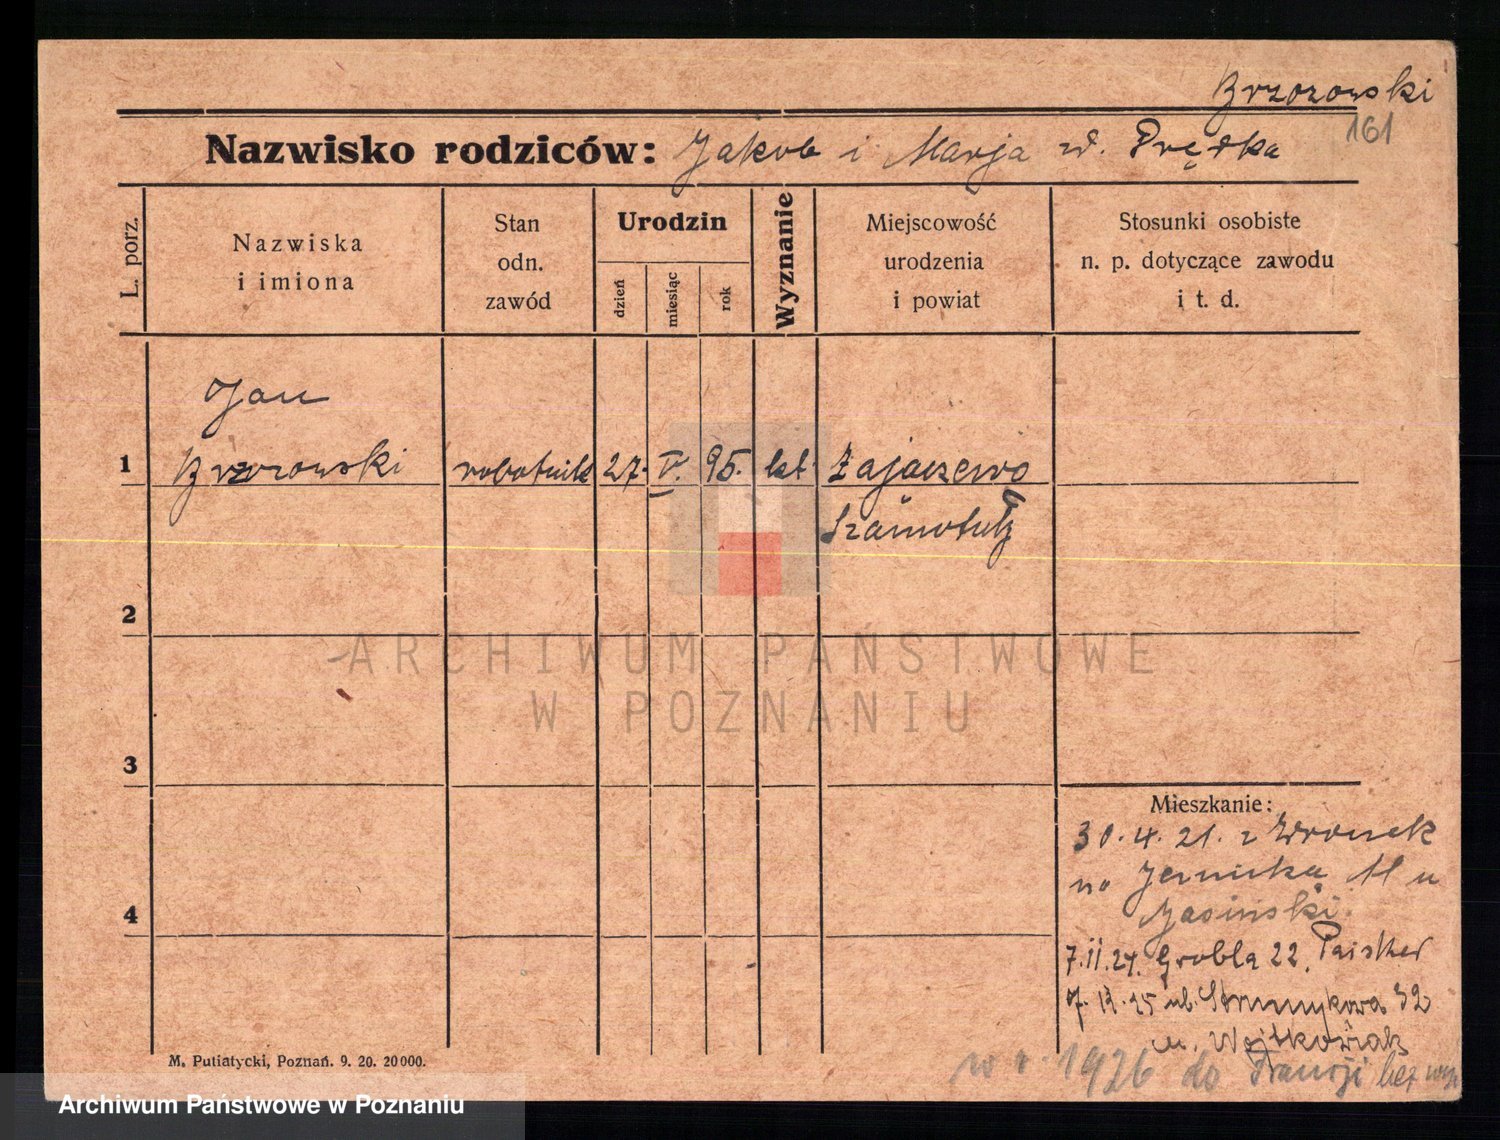 Brzozowski
161
Nazwisko rodziców: Jakób i Marja z d. Prętka
L. porz.
Nazwiska
i imiona
Stan
odn.
zawód
Urodzin
dzień
miesiąc
rok
Wyznanie
Miejscowość
urodzenia
i powiat
Stosunki osobiste
n. p. dotyczące zawodu
i t. d.
Jan
1 Brzozowski robotnik 27. V. 95. kat. Zajączewo
Szamotuły
2
ARCHIWUM PAŃSTWOWE
W POZNANIU
3
4
Mieszkanie:
30.4.21. z Wronek
na u
Jasiński.
7.11.24. Grobla 22.
25 ul. Strumykowa 32
u. Wojtkowiak
w r. 1926 do Francji bez
M. Putiatycki, Poznań. 9. 20. 20000.
Archiwum Państwowe w Poznaniu